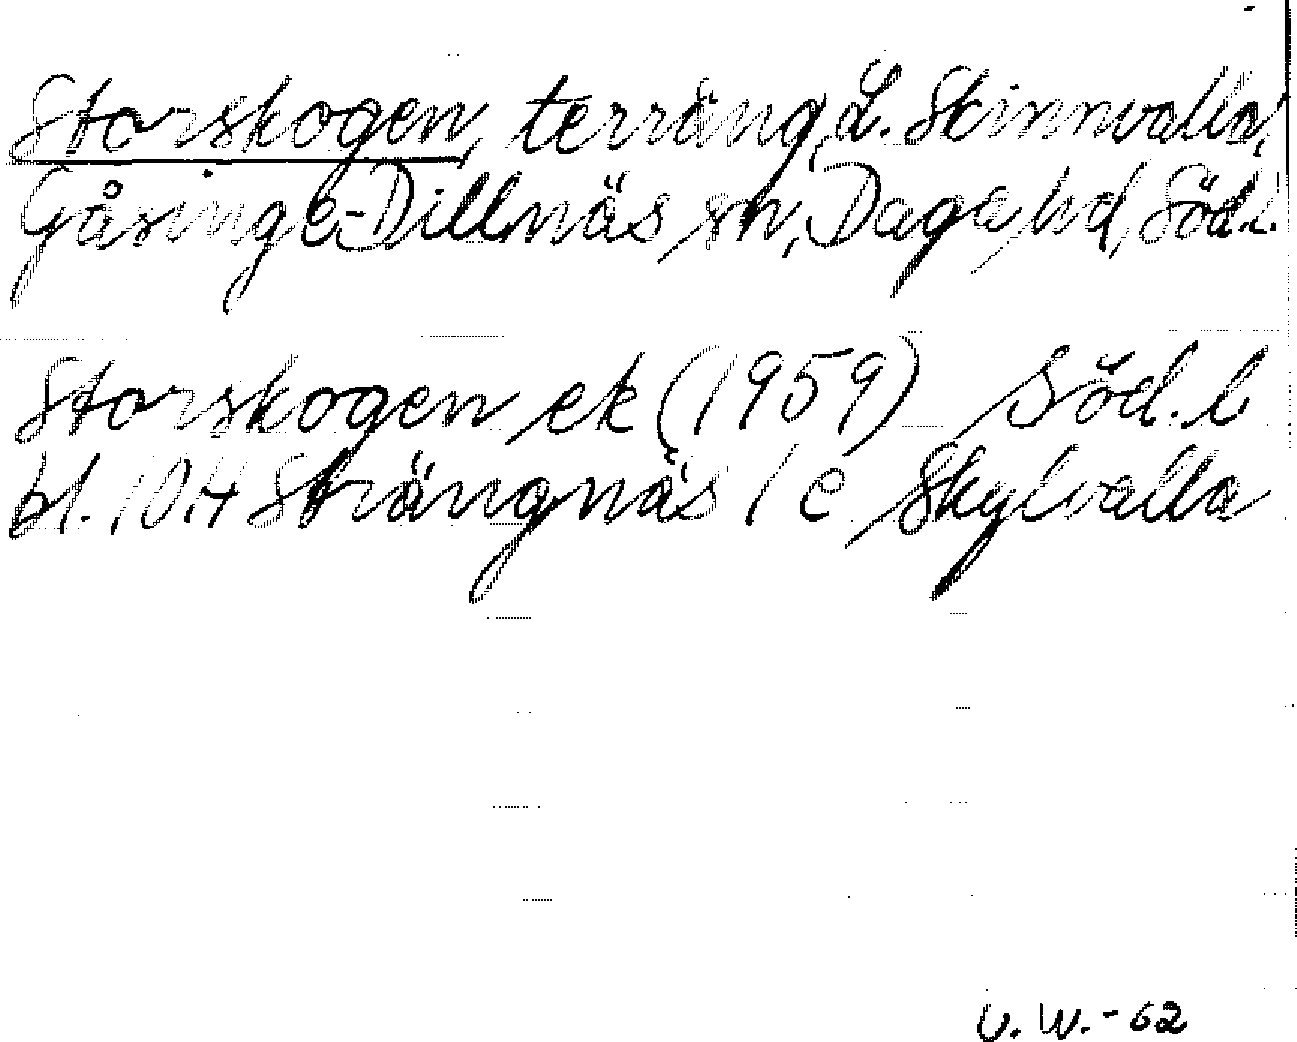 Storskogen, terräng, L. Skinnvalla,
Gåsinge-Dillnäs sn, Daga hd, Söd.l.
Storskogen ek (1959) Söd. l
bl. 10H Strängnäs 1 c Skylvalla
U. W. - 62